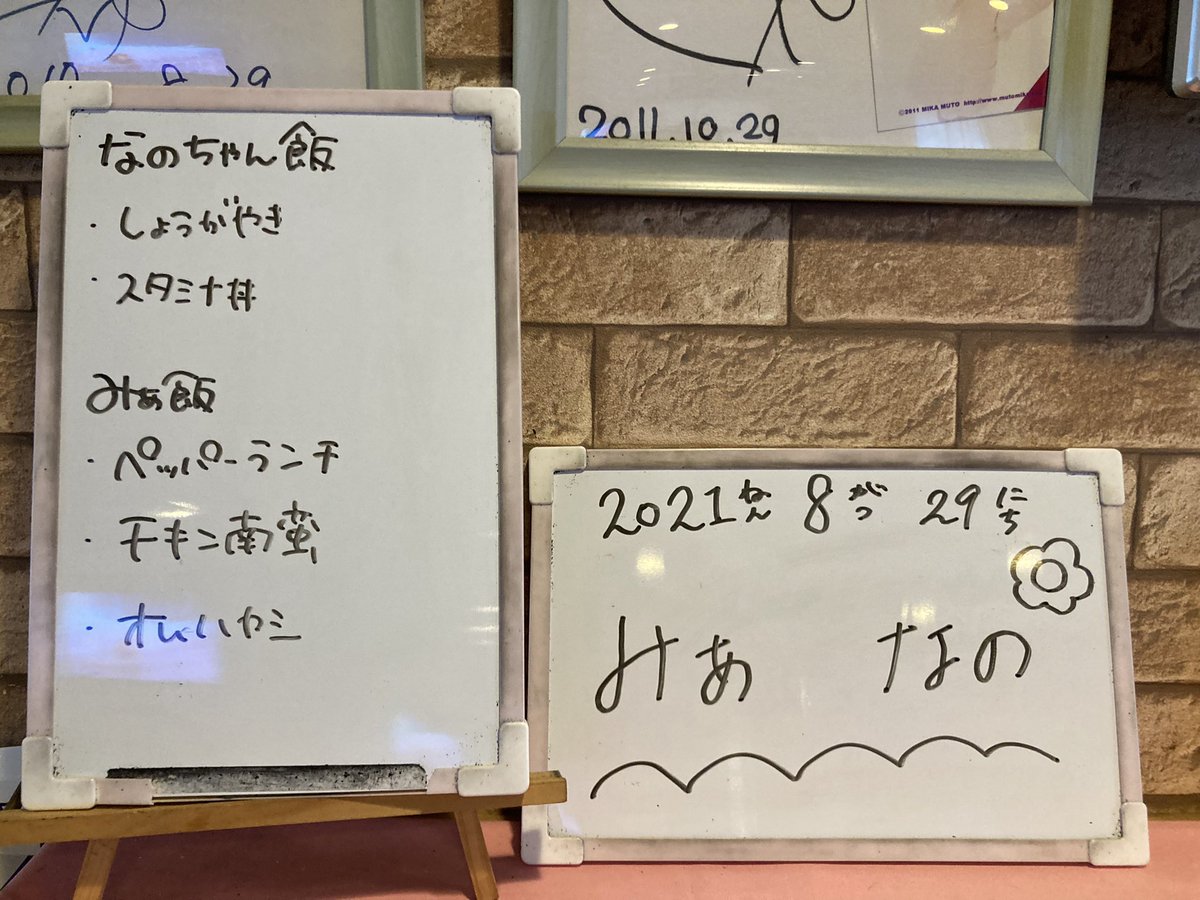 2011.10.29
©2011 MIKA MUTO http://www.mutomik
なのちゃん飯
・しょうがやき
・スタミナ丼
みぁ飯
・ペッパーランチ
・チキン南蛮
・オムハヤシ
2021ねん 8がつ 29にち
みぁ なの